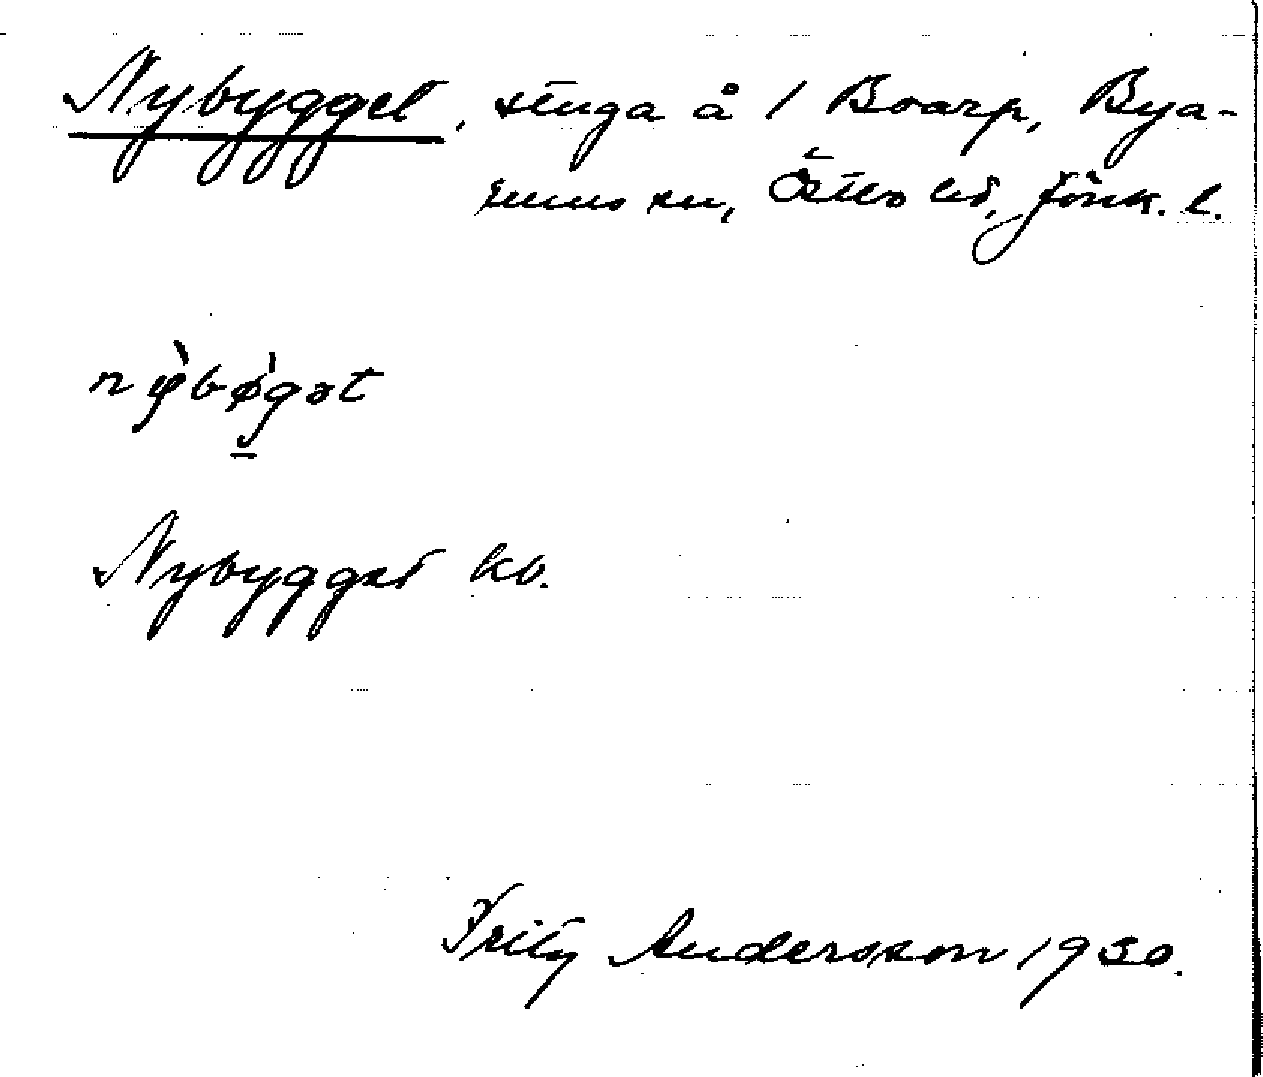 Nybygget, stuga å 1 Boarp, Bya-
rums sn, Östbo hd, Jönk. l.
nỳbǿgət
Nybygget kb.
Fritz Andersson 1930.